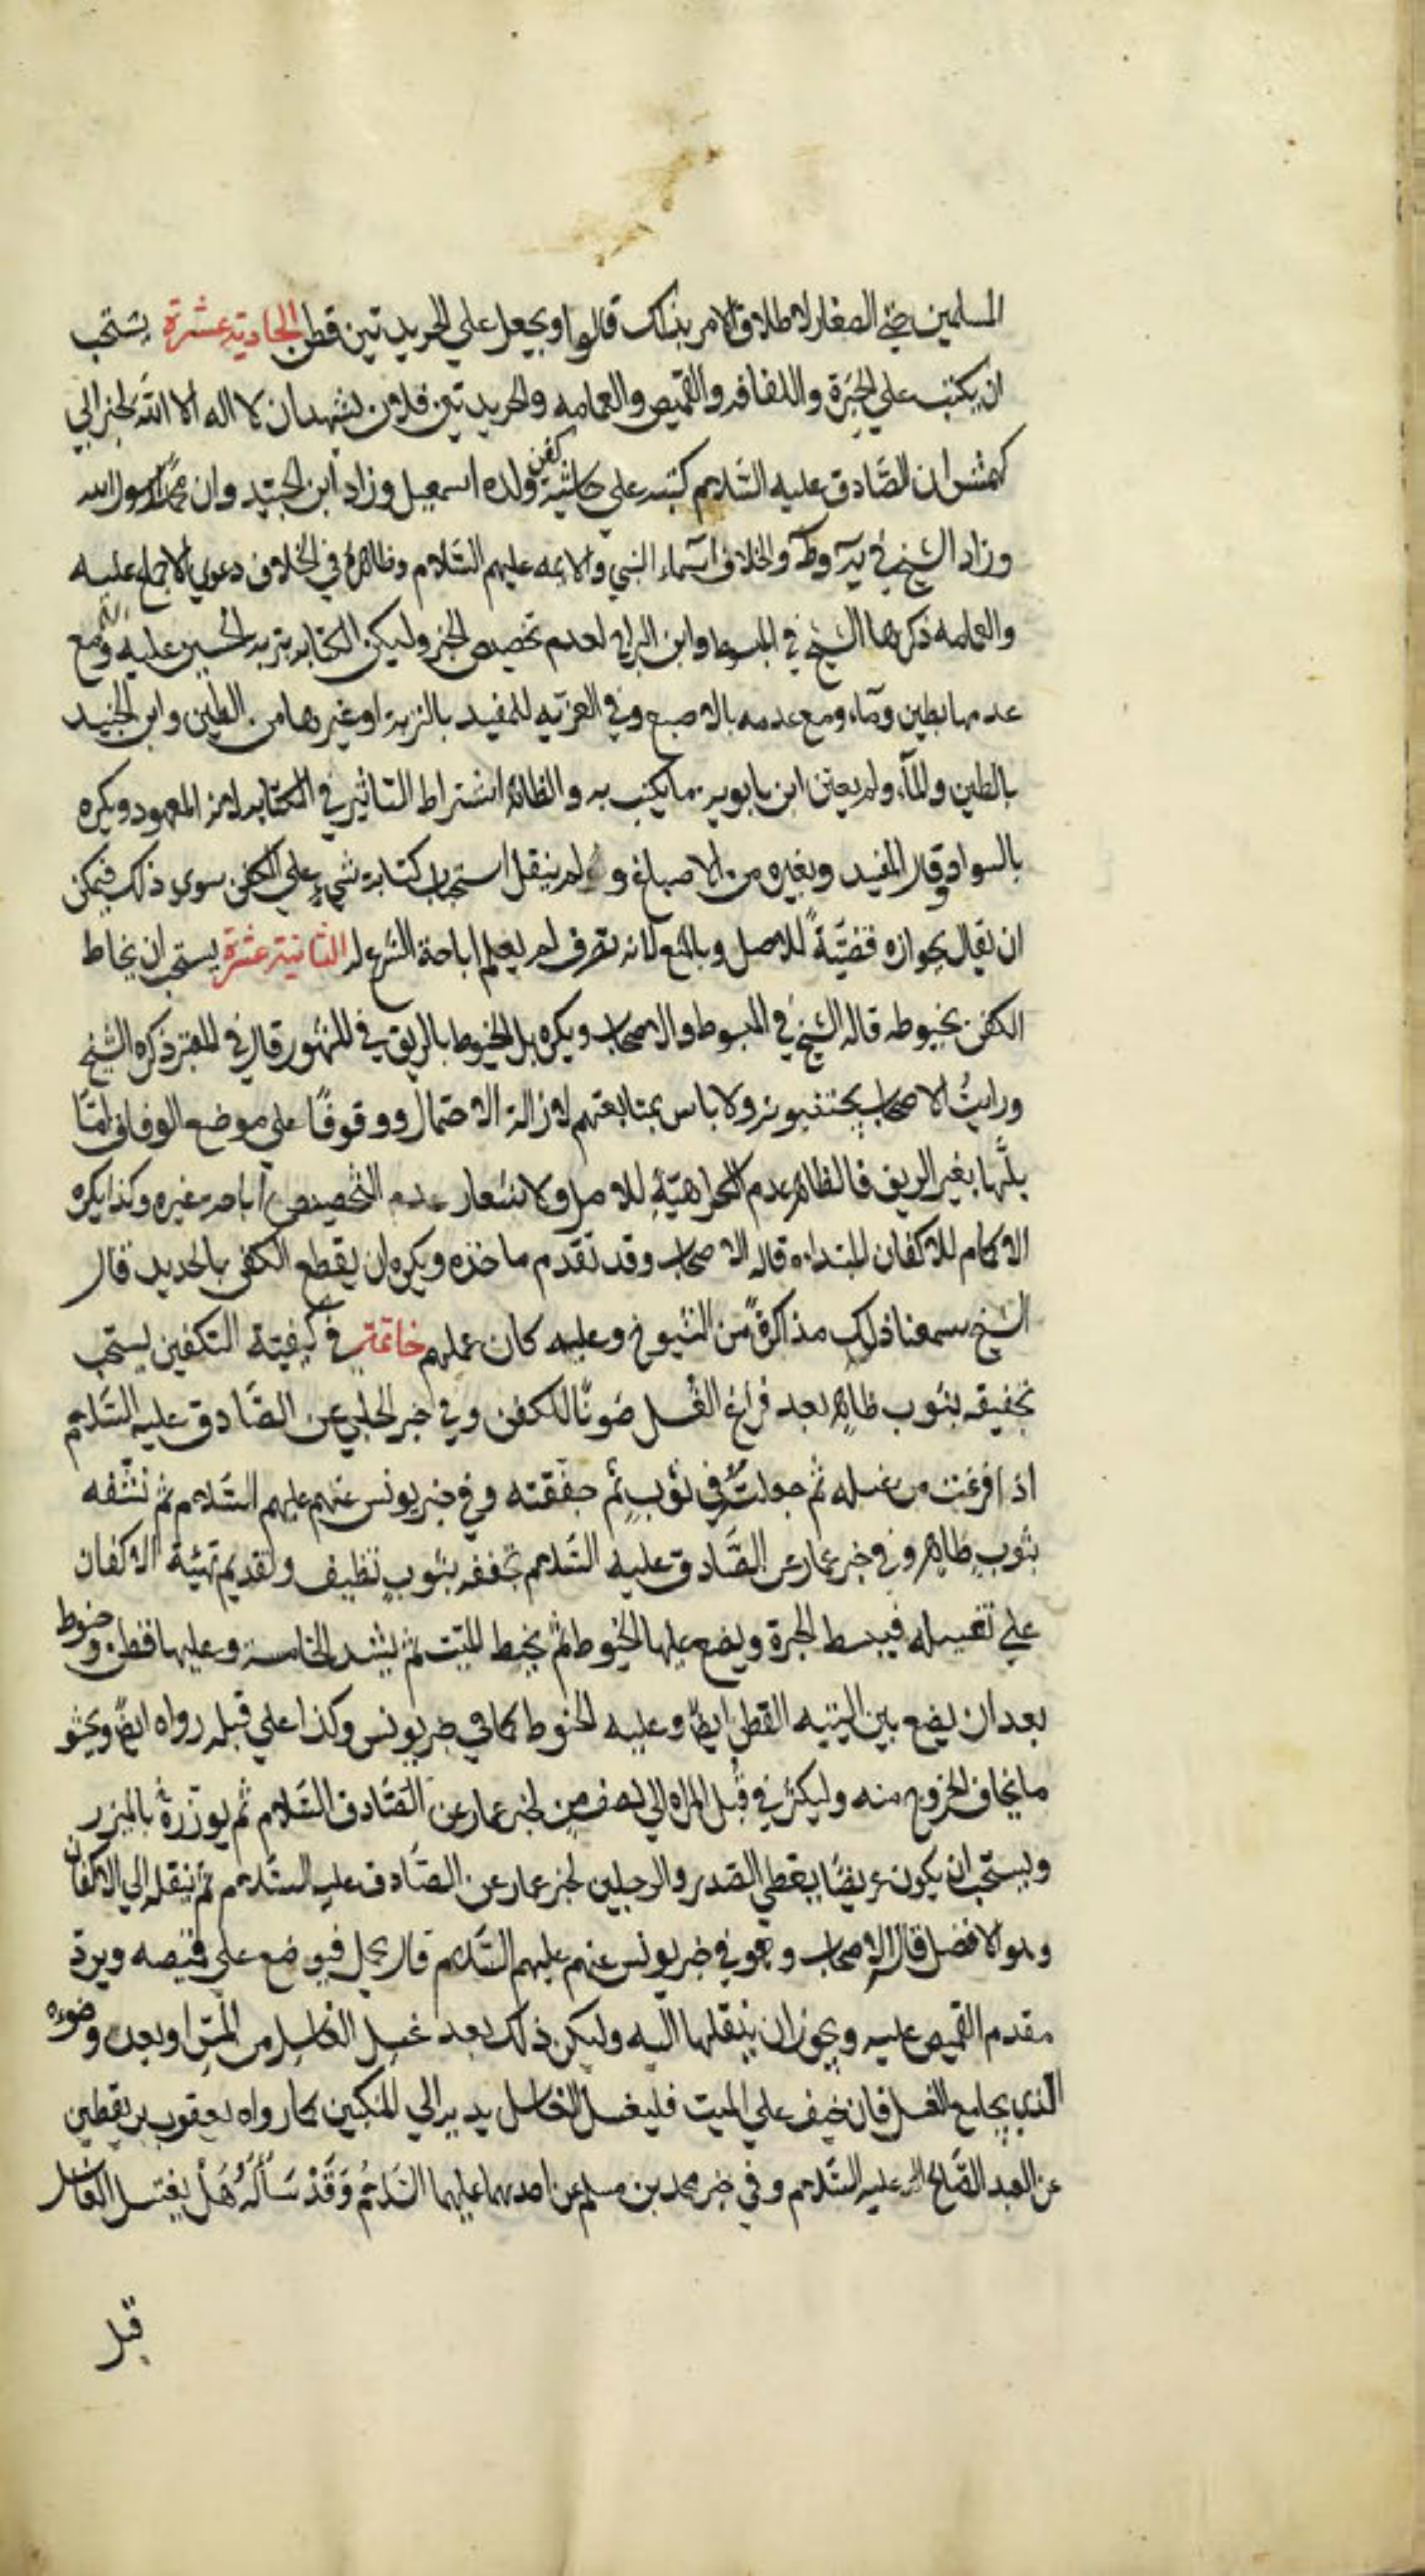 المسلمين حتى الصغار لاطلاق الامر بذلك قالوا ويجعل علي الجريدتين قطن الحادية عشرة يستحب
ان يكتب علي الحبرة واللفافه والقميص والعمامه والجريدتين فلان يشهد ان لا اله الا الله لخبر ابي
كهمش ان الصادق عليه السلام كتبه علي حاشية كفن ولده اسمعيل وزاد ابن الجنيد وان محمدا رسول الله
وزاد الشيخ في يه وط والخلاف اسماء النبي والائمه عليهم السلام وظاهره في الخلاف دعوي الاجماع عليه
والعمامه ذكرها الشيخ في المبسوط وابن البراج لعدم تخصيص الخبر وليكن الكتابه بتربه الحسين عليه السلم ومع
عدمها بطين وماء ومع عدمه بالاصبع وفي العزيه للمفيد بالتربة او غيرها من الطين وابن الجنيد
بالطين والماء ولم يعين ابن بابويه ما يكتب به والظاهر اشتراط التاثير في الكتابه لانه المعهود ويكره
بالسواد وقال المفيد وبغيره من الاصباغ و لم ينقل استحباب كتابة شيء علي الكفن سوي ذلك فيمكن
ان يقال بجوازه قضيّةً للاصل وبالمنع لانه تصرف لم يعلم اباحة الشرع له الثانية عشرة يستحب ان يخاط
الكفن بخيوطه قاله الشيخ في المبسوط والاصحاب ويكره بل الخيوط بالريق في المشهور قال في المعتبر ذكره الشيخ
ورايتُ الاصحاب يجتنبونه ولا باس بمتابعتهم لازالة الاحتمال ووقوفًا علي موضع الوفاق امّا
بلّها بغير الريق فالظاهر عدم الكراهيّة للاصل ولاشعار عدم التخصيص اباحة غيره وكذا يكره
الاكمام للاكفان المبتداه قاله الاصحاب وقد تقدم ماخذه ويكره ان يقطع الكفن بالحديد قال
الشيخ سمعنا ذلك مذاكرةً من الشيوخ وعليه كان عملهم خاتمة في كيفية التكفين يستحب
تجفيفه بثوب طاهر بعد فراغ الغسل صونًا للكفن وفي خبر الحلبي عن الصادق عليه السلام
اذا فرغت من غسله ثم جعلته في ثوبٍ ثم جففته وفي خبر يونس عنهم عليهم السلام ثم نشّفه
بثوبٍ طاهر وفي خبر عمار عن الصّادق عليه السلام تجففه بثوبٍ نظيف ولقديم تهيئة الاكفان
علي تغسيله فيبسط الحبرة ويضع عليها الحنوط ثم يحنط الميت ثم يشد الخامسة وعليها قطن وحنوط
بعد ان يضع بين اليتيه القطن ايضًا وعليه الحنوط كما في خبر يونس وكذا علي قبله رواه ايضًا ويحشو
ما يخاف الخروج منه وليكثر في قُبل المراه الي نصف منٍ لخبر عمار عن الصّادق السّلام ثم يوزره بالميزر
ويستحب ان يكون عريضًا يغطي الصدر والرجلين لخبر عمار عن الصّادق عليه السّلام ثم ينقله الي الاكفان
وهو الافضل قاله الاصحاب وهو في خبر يونس عنهم عليهم السّلام قال يحمل فيوضع علي قميصه ويرد
مقدم القميص عليه ويجوز ان ينقلها اليه وليكن ذلك بعد غسل الغاسل من المسّ او بعد وضوءه
الذي يجامع الغسل فان خيف علي الميت فليغسل الغاسل يديه الي المنكبين كما رواه يعقوب بن يقطين
عن العبد الصّالح عليه السّلام وفي خبر محمد بن مسلم عن احدهما عليهما السّلامُ وَقَدْ سَأَلَهُ هَلْ يغتسل الغاسل
قبل